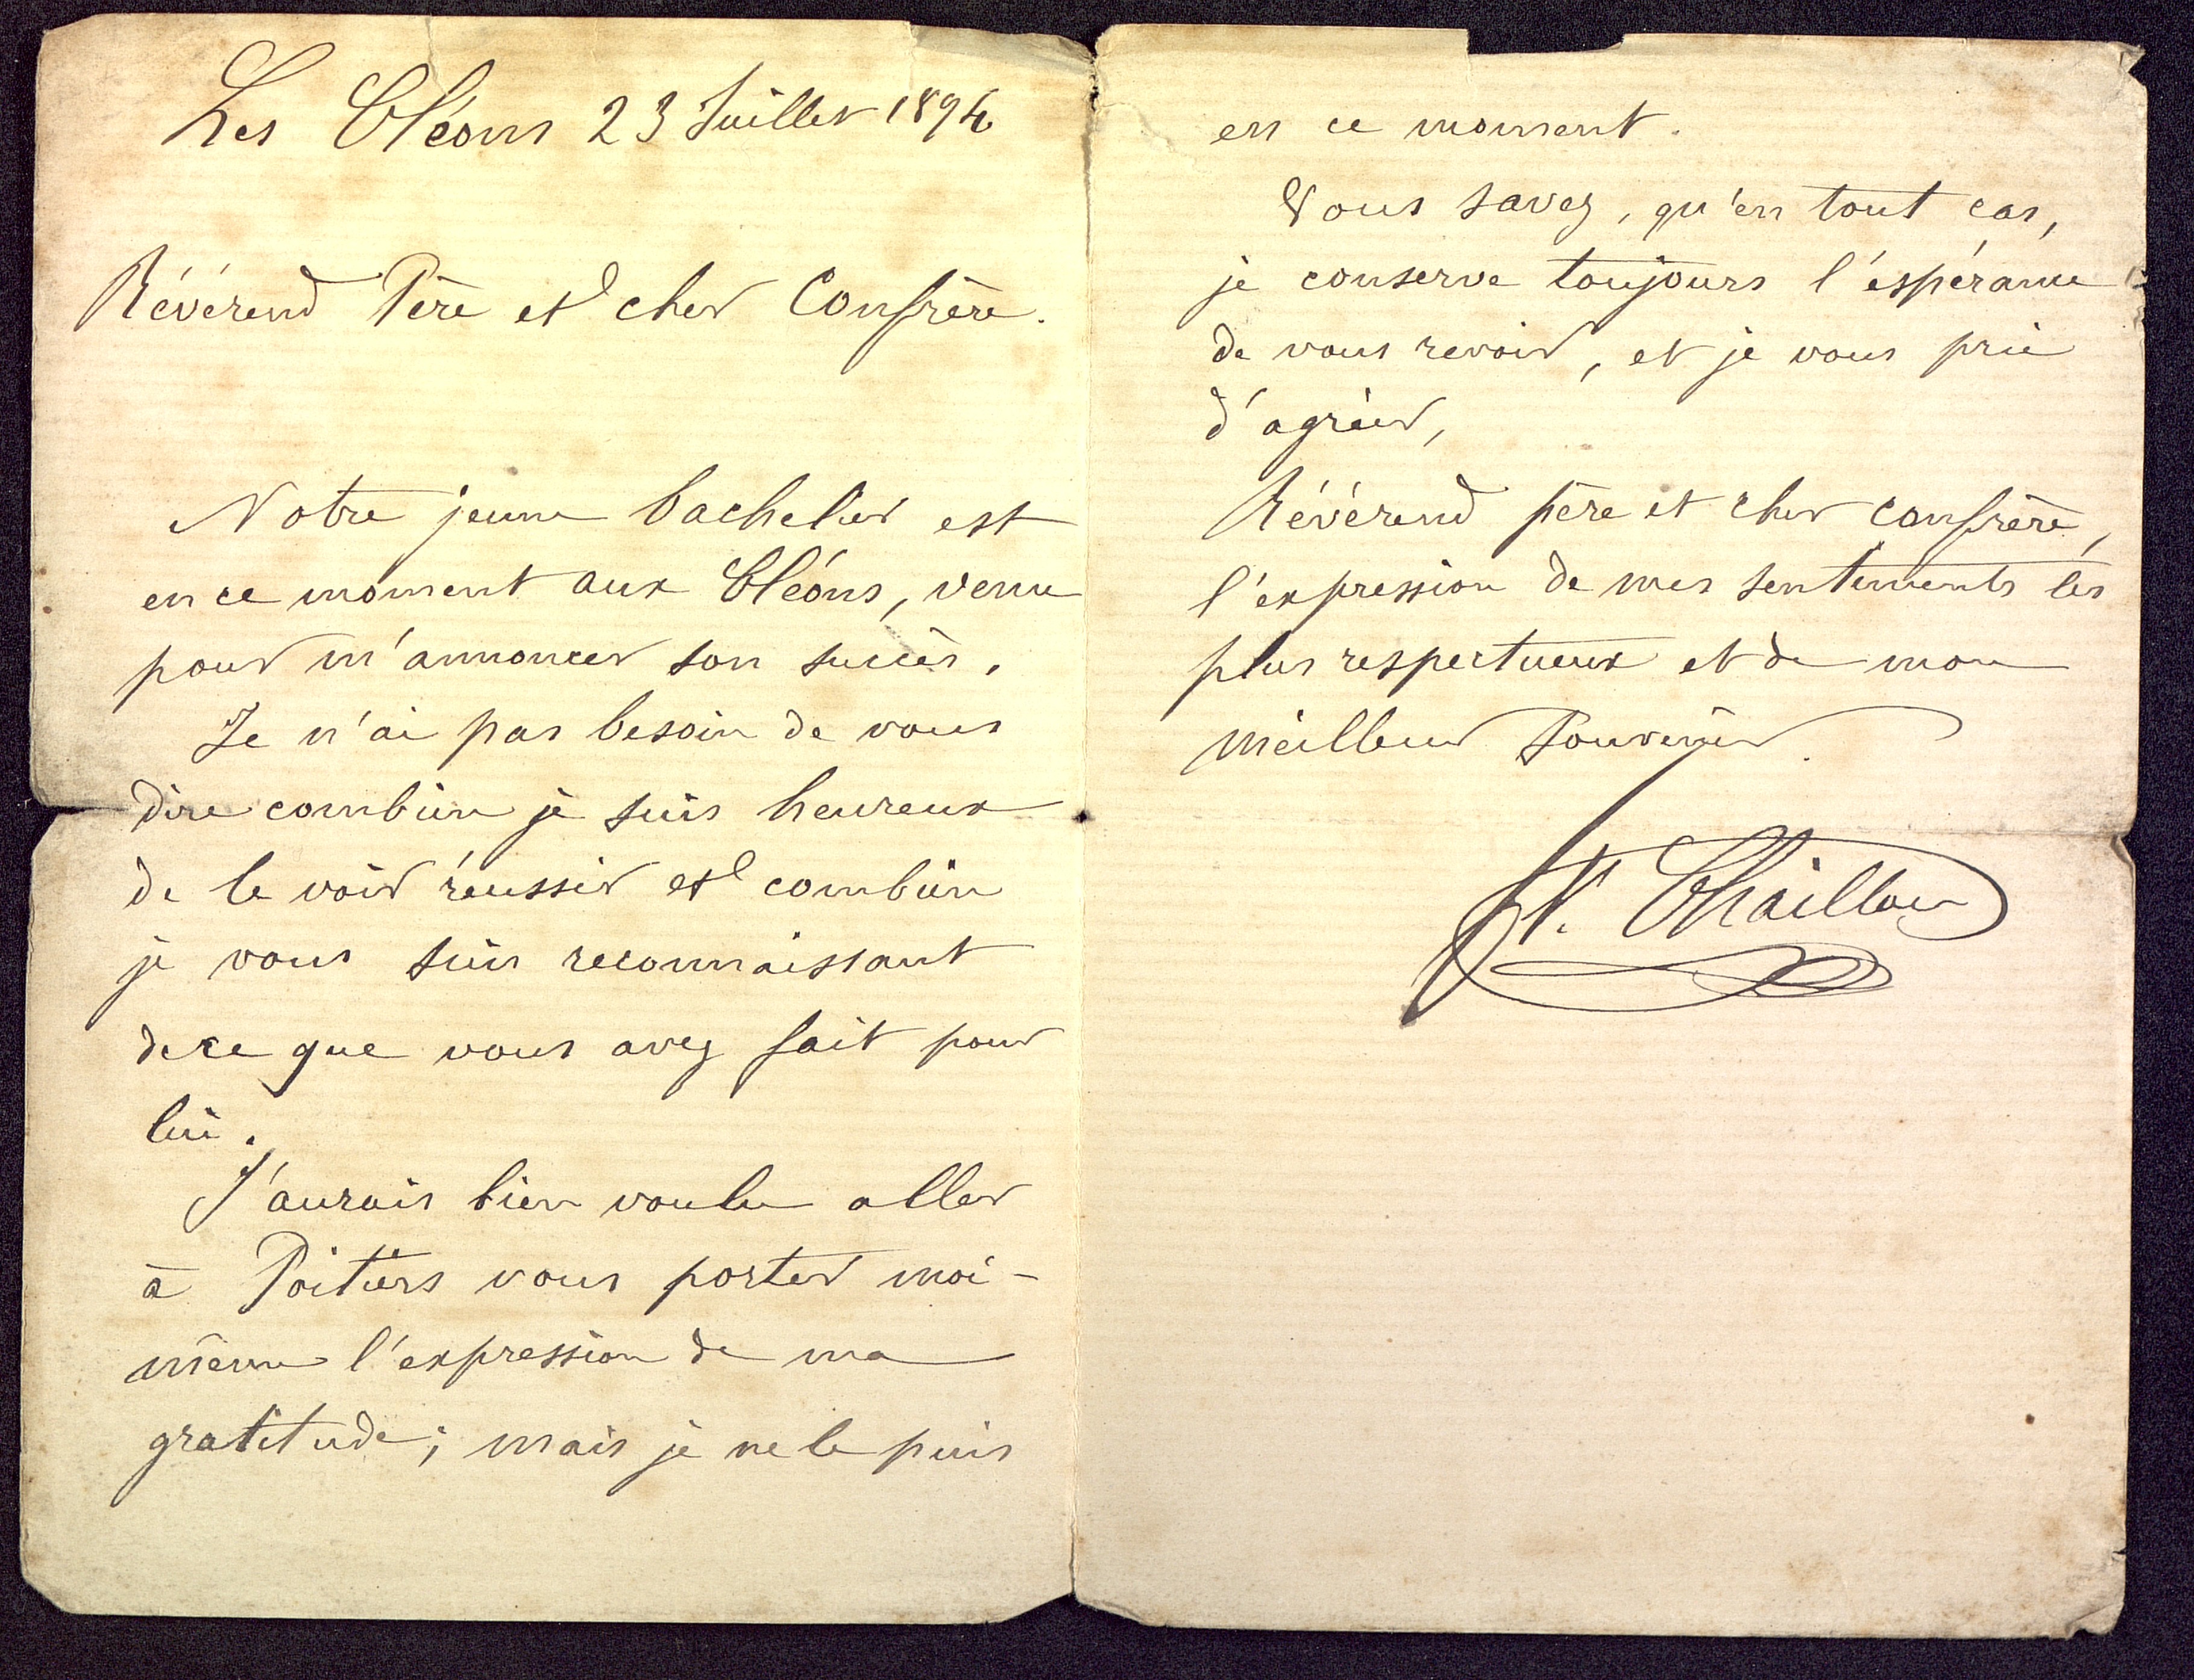 Les Cléons 23 Juillet 1894
Révérend Père et cher Confrère.
Notre jeune bachelier est
en ce moment aux Cléons, venu
pour m'annoncer son succès.
Je n'ai pas besoin de vous
dire combien je suis heureux
de le voir réussir et combien
je vous suis reconnaissant
de ce que vous avez fait pour
lui.
J'aurais bien voulu aller
à Poitiers vous porter moi-
même l'expression de ma
gratitude; mais je ne le puis
en ce moment.
Vous savez, qu'en tout cas,
je conserve toujours l'espérance
de vous revoir, et je vous prie
d'agréer,
Révérend père et cher confrère,
l'expression de mes sentiments les
plus respectueux et de mon
meilleur souvenir.
F. Chaillou